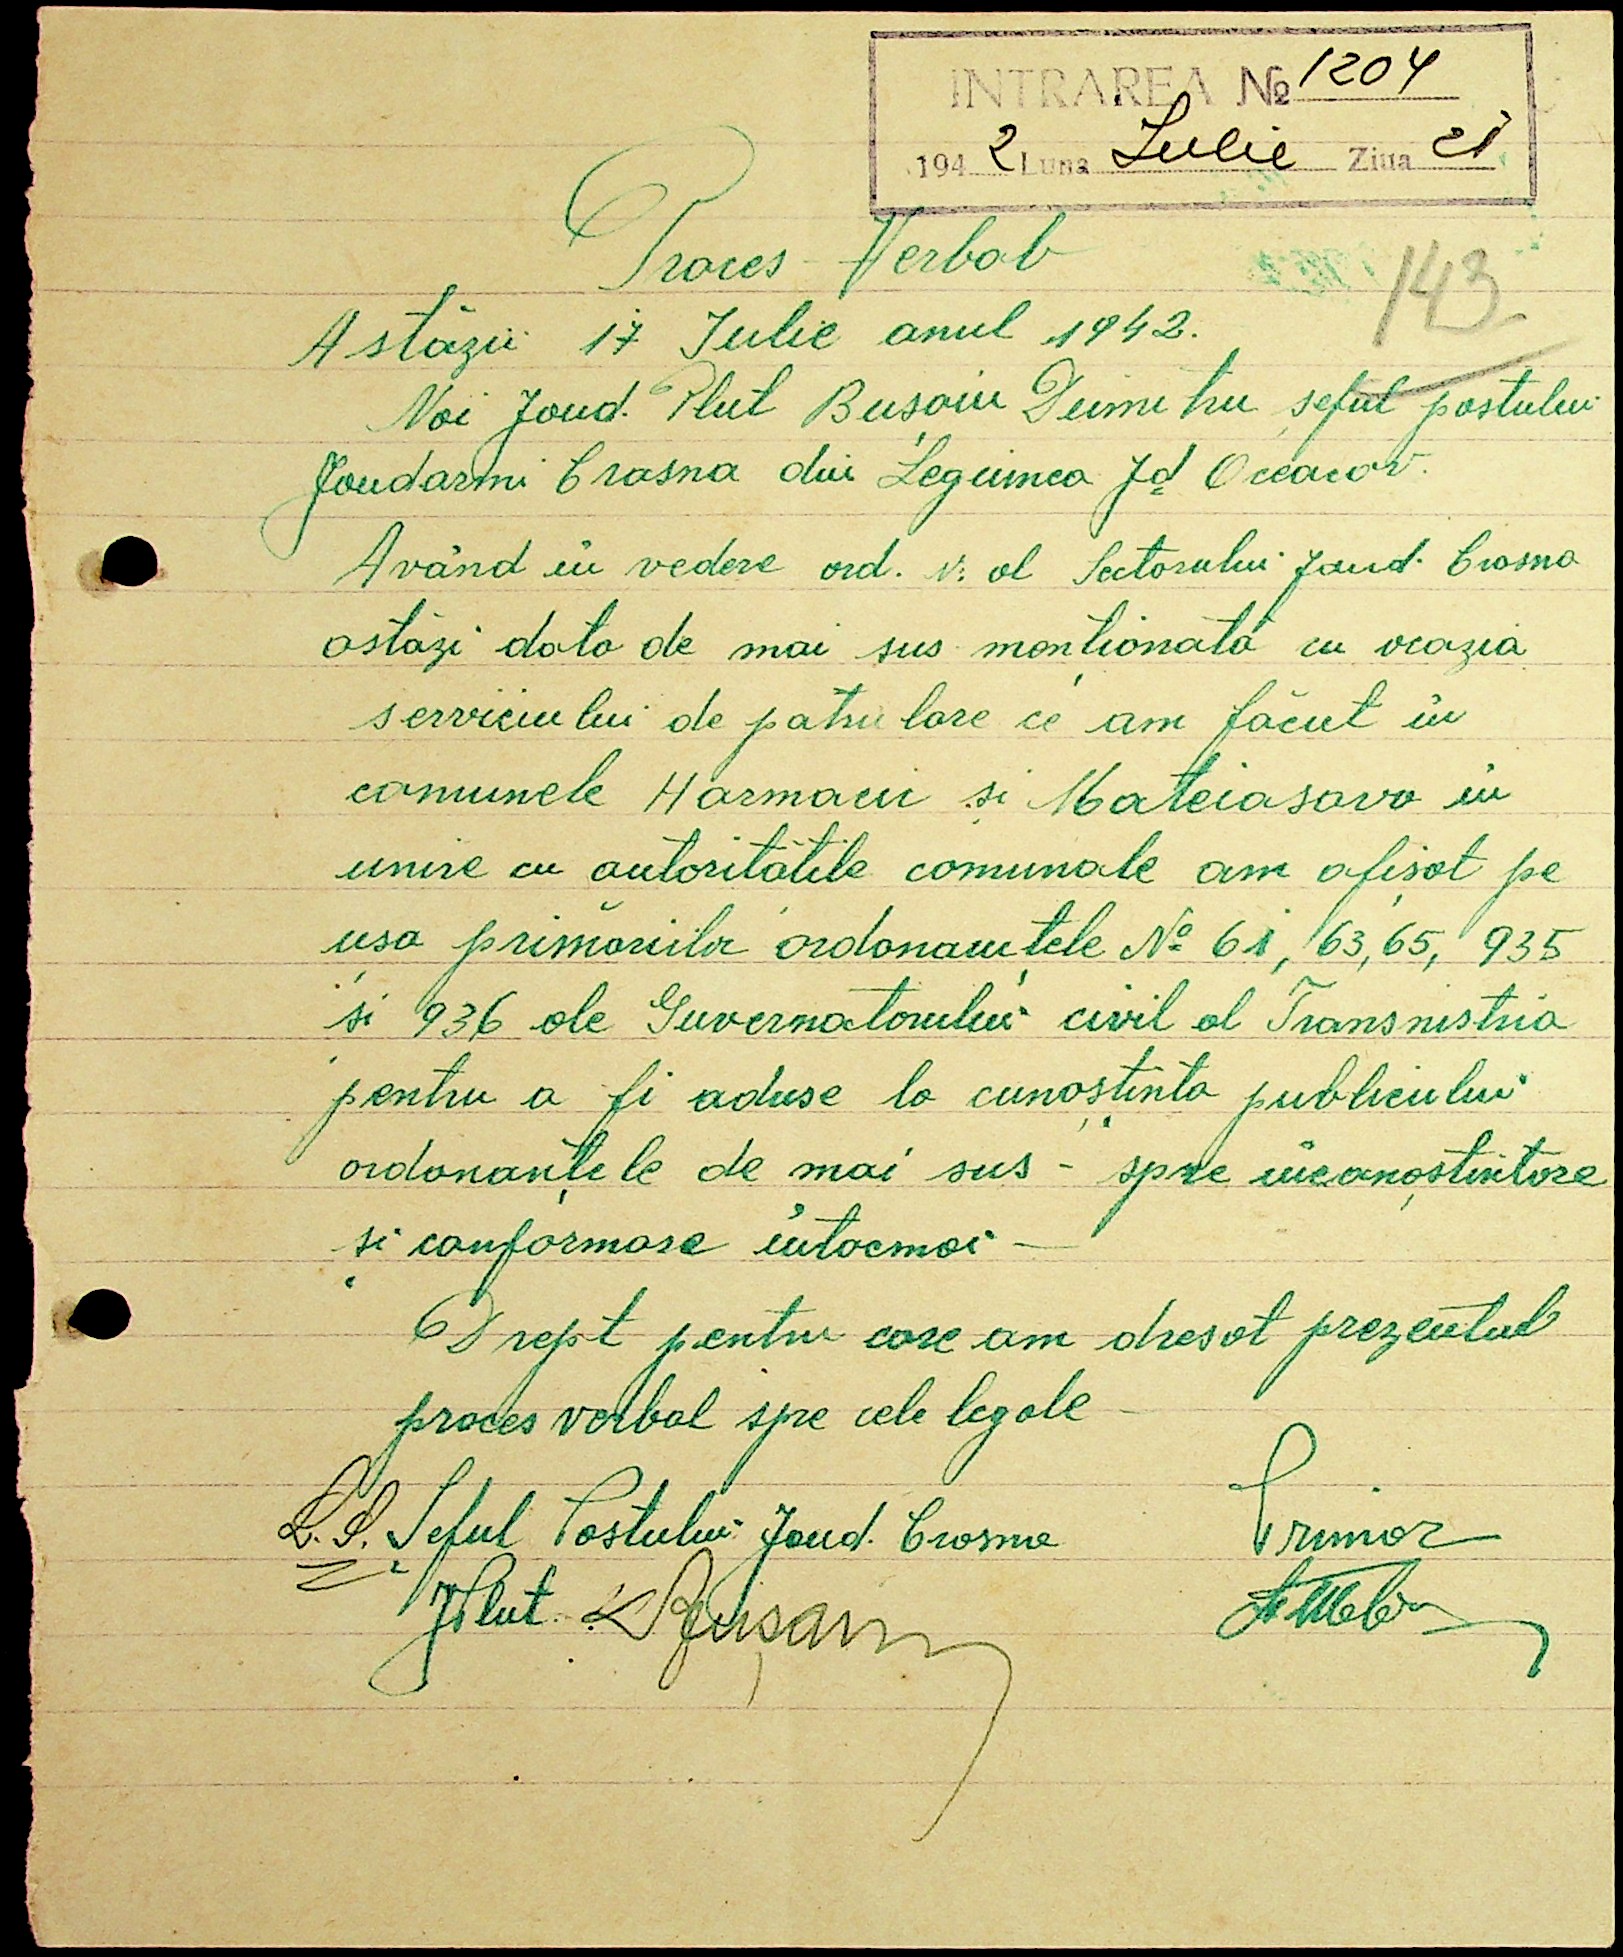 INTRAREA № 1204
1942 Luna Iulie Ziua 21
143
Proces-Verbal
Astăzii 17 Iulie anul 1942.
Noi Jand. Plut Bușoiu Dumitru șeful postului
Jandarmi Crasna din Legiunea Jd Oceacov.
Având în vedere ord. N: al Sectorului Jand. Crasna
astăzi data de mai sus menționată cu ocazia
serviciului de patrulare ce am făcut în
comunele Harmacii și Mateiasovo în
unire cu autoritățile comunale am afișat pe
ușa primăriilor ordonanțele Nº 61, 63, 65, 935
și 936 ale Guvernatorului civil al Transnistria
pentru a fi aduse la cunoștința publicului
ordonanțele de mai sus - spre încunoștințare
și conformare întocmai -
Drept pentru care am dresat prezentul
proces verbal spre cele legale -
L.S. Șeful Postului Jand. Crasna
Plut.
Primar